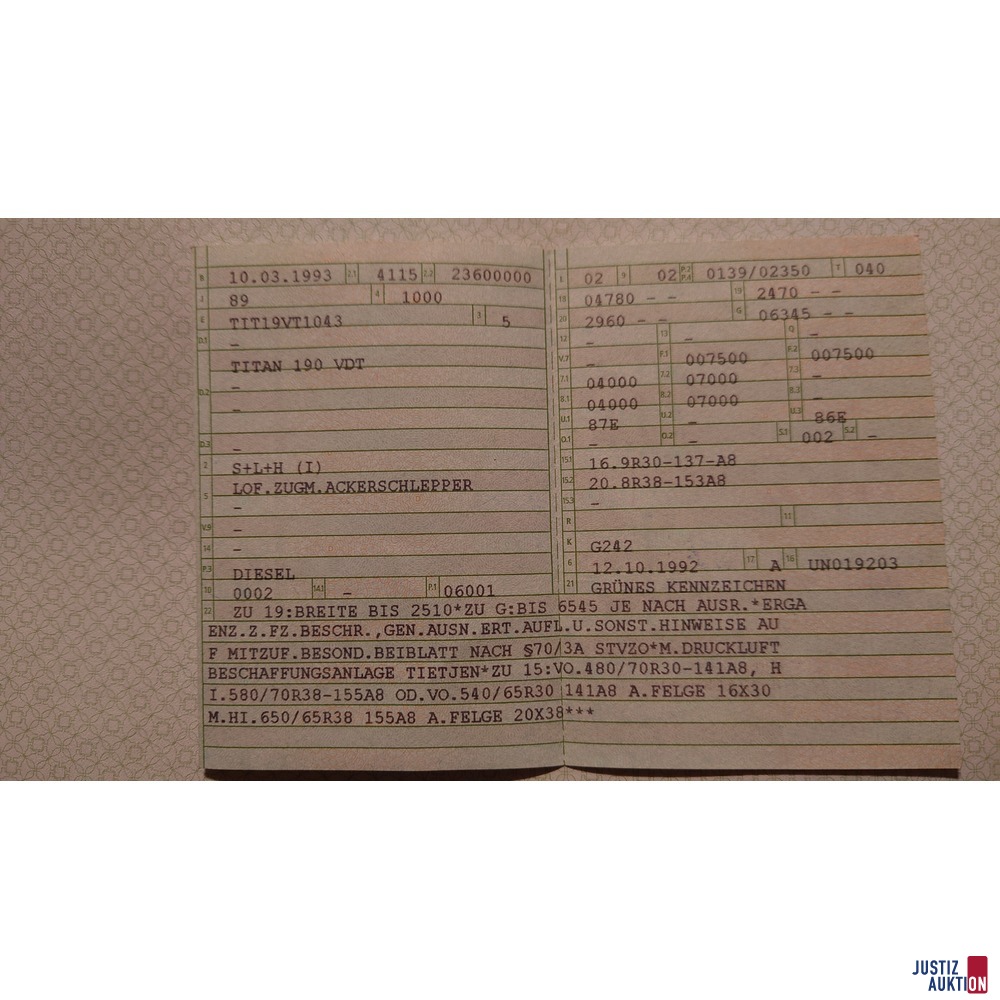 B 10.03.1993 2.1 4115 2.2 23600000
J 89 4 1000
E TIT19VT1043 3 5
D.1 –
TITAN 190 VDT
D.2 –
–
D.3 –
2 S+L+H (I)
5 LOF.ZUGM.ACKERSCHLEPPER
–
V.9 –
14 –
P.3 DIESEL
10 0002 14.1 – P.1 06001
L 02 9 02 P.2 P.4 0139/02350 T 040
18 04780 – – 19 2470 – –
20 2960 – – G 06345 – –
12 – 13 – Q –
V.7 – F.1 007500 F.2 007500
7.1 04000 7.2 07000 7.3 –
8.1 04000 8.2 07000 8.3 –
U.1 87E U.2 – U.3 86E
O.1 – O.2 – S.1 002 S.2 –
15.1 16.9R30-137-A8
15.2 20.8R38-153A8
15.3 –
R 11
K G242
6 12.10.1992 17 A 16 UN019203
21 GRÜNES KENNZEICHEN
22 ZU 19:BREITE BIS 2510*ZU G:BIS 6545 JE NACH AUSR.*ERGA
ENZ.Z.FZ.BESCHR.,GEN.AUSN.ERT.AUFL.U.SONST.HINWEISE AU
F MITZUF.BESOND.BEIBLATT NACH §70/3A STVZO*M.DRUCKLUFT
BESCHAFFUNGSANLAGE TIETJEN*ZU 15:VO.480/70R30-141A8, H
I.580/70R38-155A8 OD.VO.540/65R30 141A8 A.FELGE 16X30
M.HI.650/65R38 155A8 A.FELGE 20X38***
JUSTIZ
AUKTION